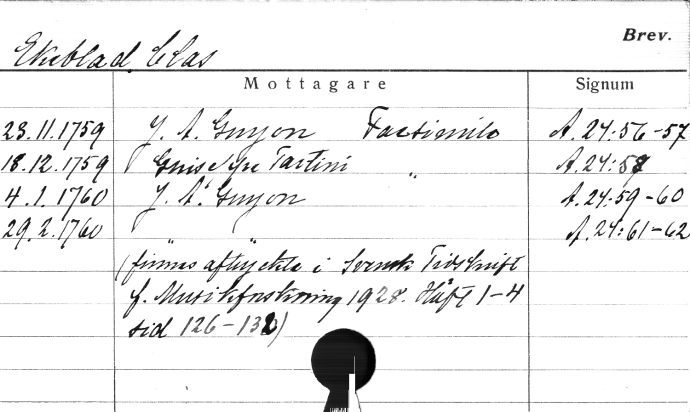 Brev.
Ekeblad, Clas
Mottagare Signum
23.11.1759 J. A. Guyon Facsimile A. 24:56-57
18.12.1759 Guiseppe Tartini " A. 24:58
4.1.1760 J. A. Guyon A. 24:59-60
29.2.1760 " " A. 24:61-62
(finnas aftryckta i Svensk Tidskrift
f. Musikforskning 1928. Häft 1-4
sid 126-132)